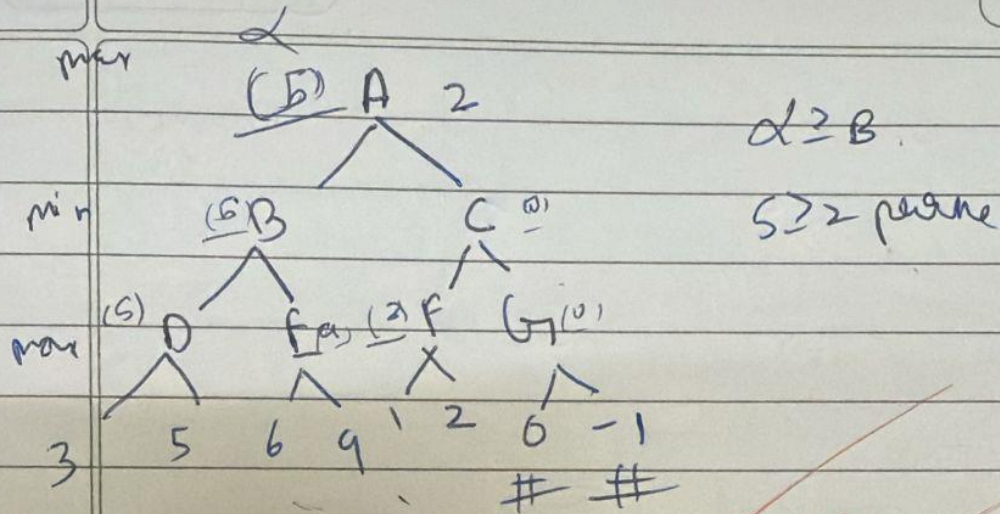 α
max (5) A 2
α ≥ B.
min (5) B C (0)
5 ≥ 2 prune
max (5) D E (9) (2) F G (0)
3 5 6 9 1 2 0 -1
# #